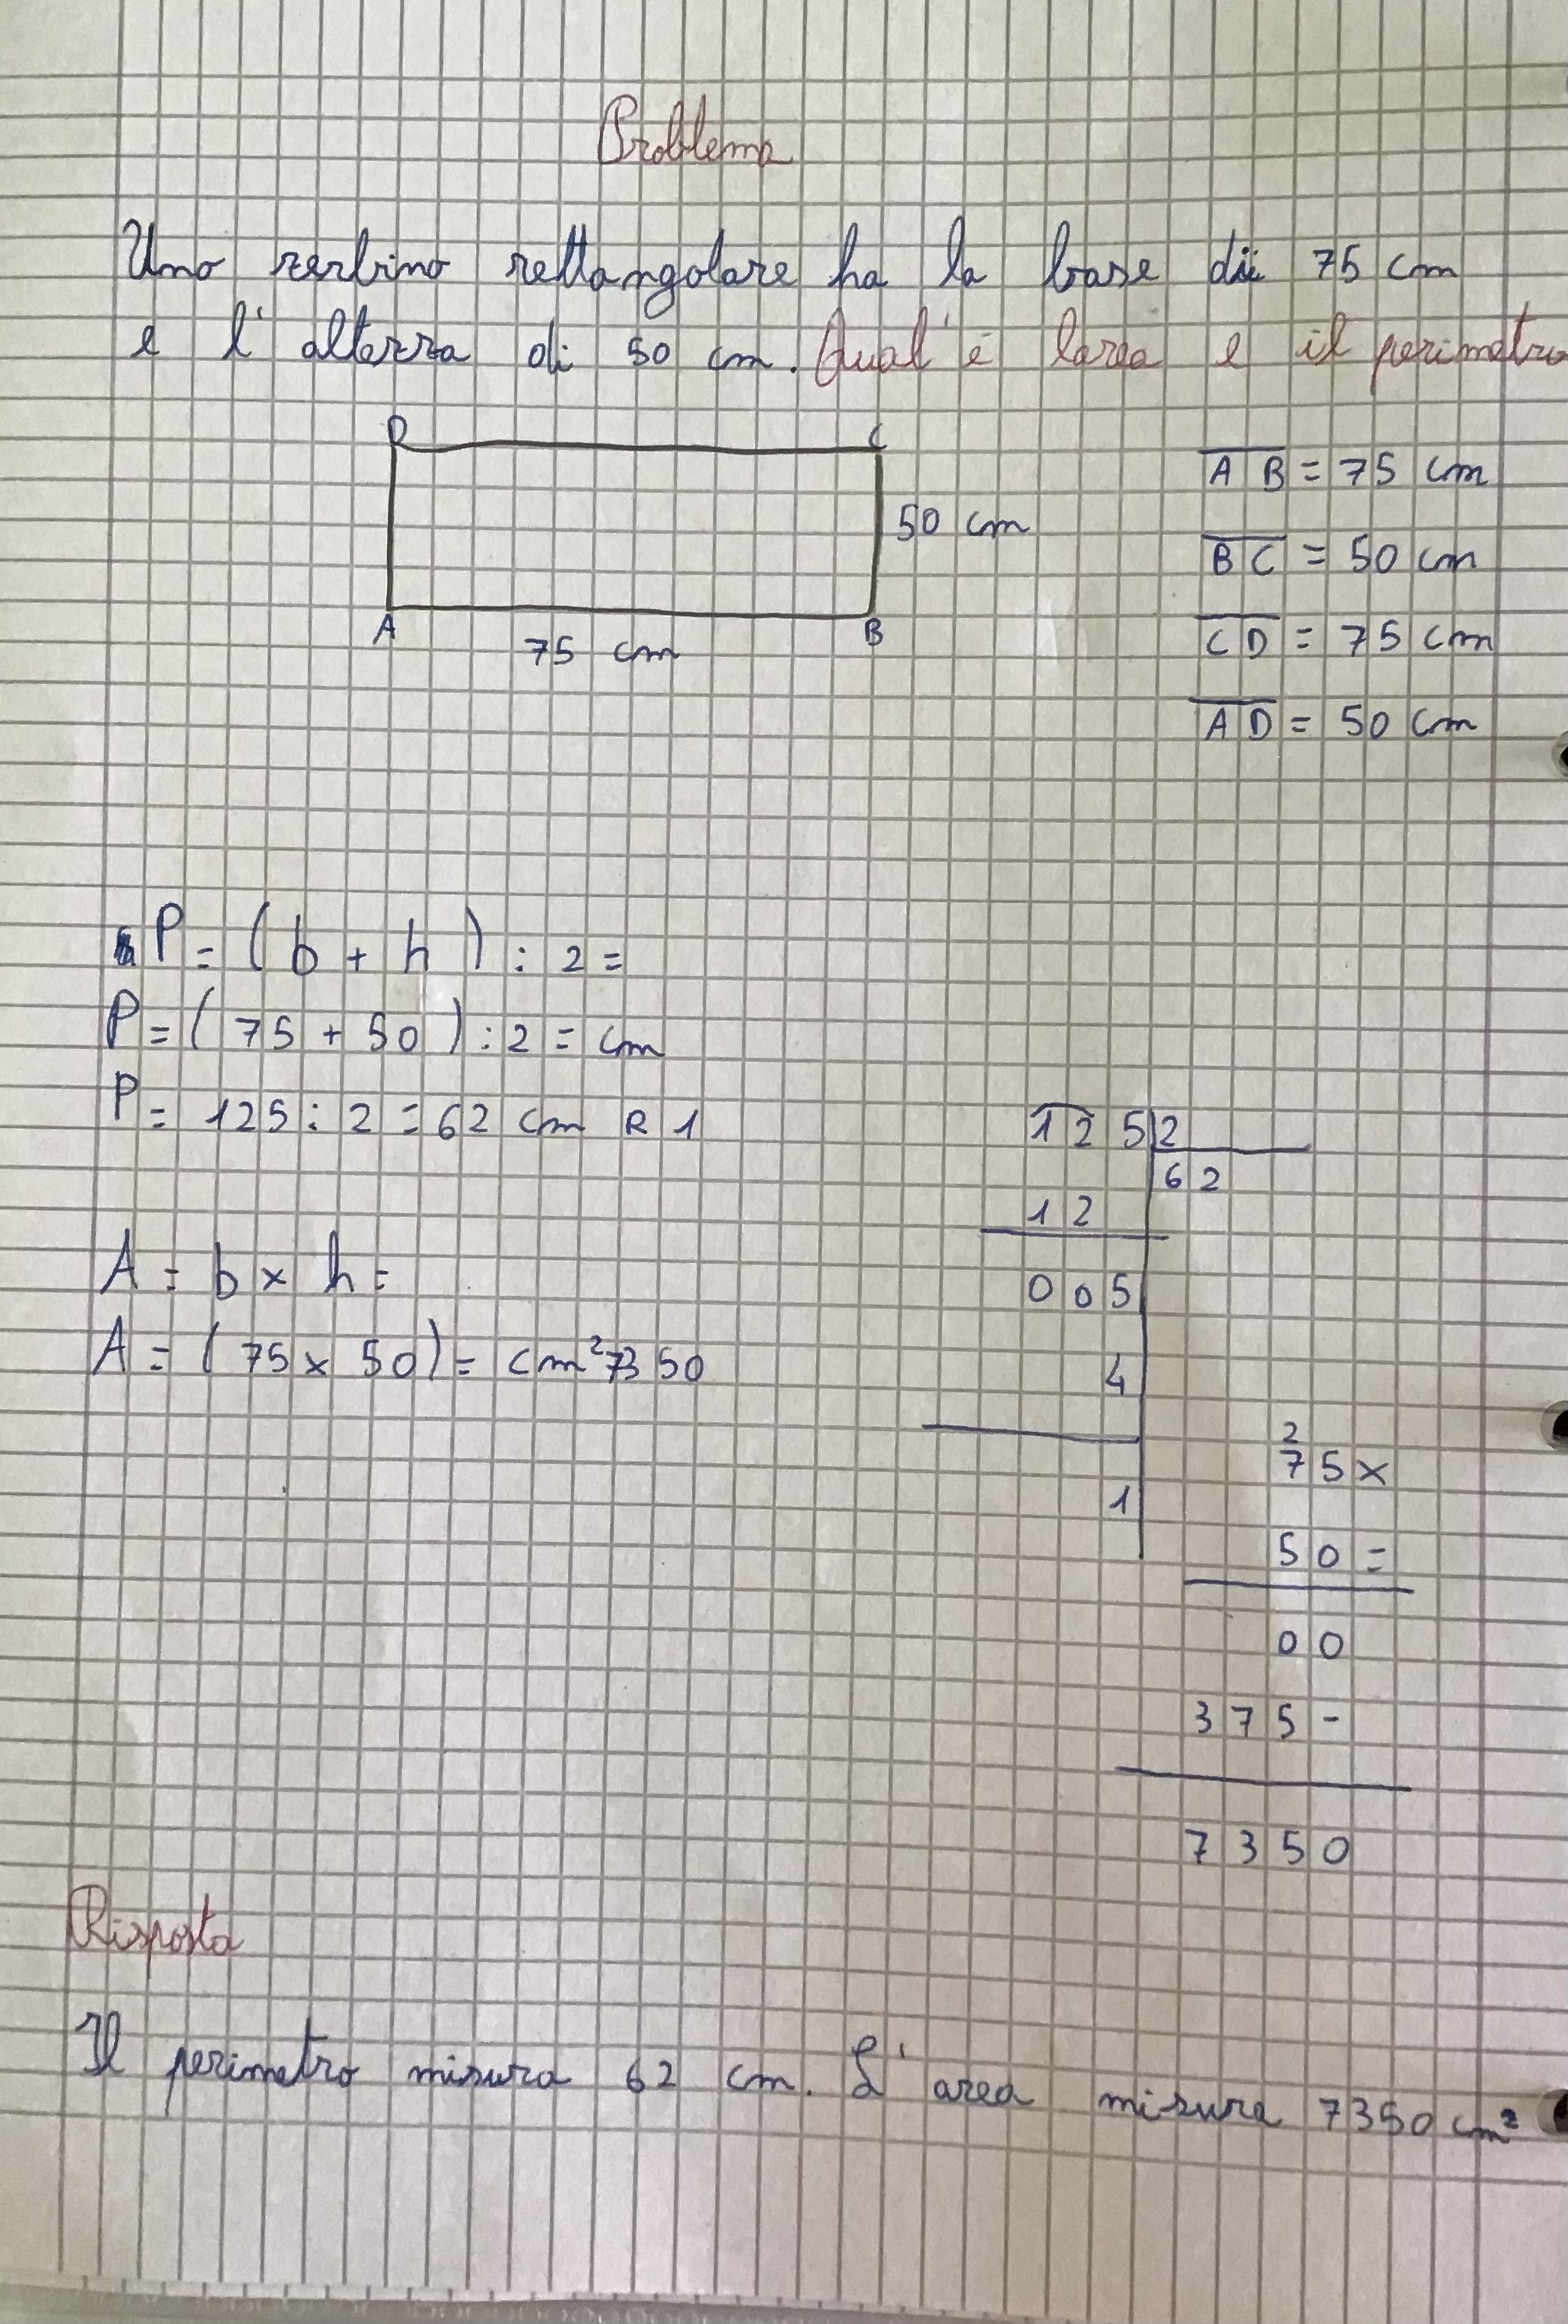 Problema
Uno zerbino rettangolare ha la base di 75 cm
e l'altezza di 50 cm. Qual'è larea e il perimetro
D C
50 cm
A B
75 cm
AB = 75 cm
BC = 50 cm
CD = 75 cm
AD = 50 cm
P = ( b + h ) : 2 =
P = ( 75 + 50 ) : 2 = cm
P = 125 : 2 = 62 cm R 1
A = b x h =
A = ( 75 x 50 ) = cm² 7350
125 2
62
12
005
4
1
2
75 x
50 =
00
375 -
7350
Risposta
Il perimetro misura 62 cm. L'area misura 7350 cm²